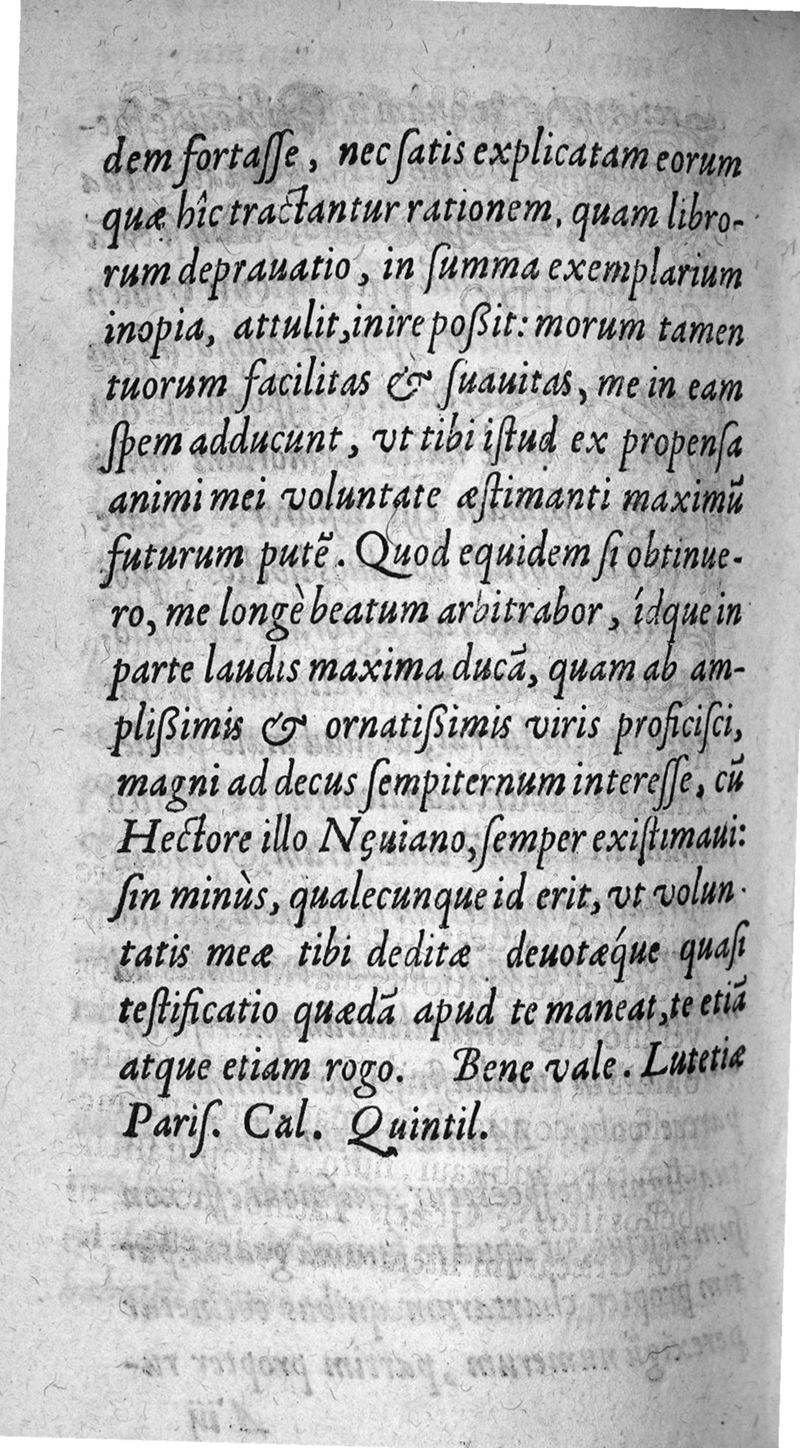 dem fortaſſe, nec ſatis explicatam eorum
quæ hîc tractantur rationem, quam libro-
rum deprauatio, in ſumma exemplarium
inopia, attulit, inire poßit: morum tamen
tuorum facilitas & ſuauitas, me in eam
ſpem adducunt, vt tibi iſtud ex propenſa
animi mei voluntate æſtimanti maximū
futurum putē. Quod equidem ſi obtinue-
ro, me longè beatum arbitrabor, ídque in
parte laudis maxima ducā, quam ab am-
plißimis & ornatißimis viris proficiſci,
magni ad decus ſempiternum intereſſe, cū
Hectore illo Nęuiano, ſemper exiſtimaui:
ſin minùs, qualecunque id erit, vt volun-
tatis meæ tibi deditæ deuotæq́ue quaſi
teſtificatio quædā apud te maneat, te etiā
atque etiam rogo. Bene vale. Lutetiæ
Pariſ. Cal. Quintil.